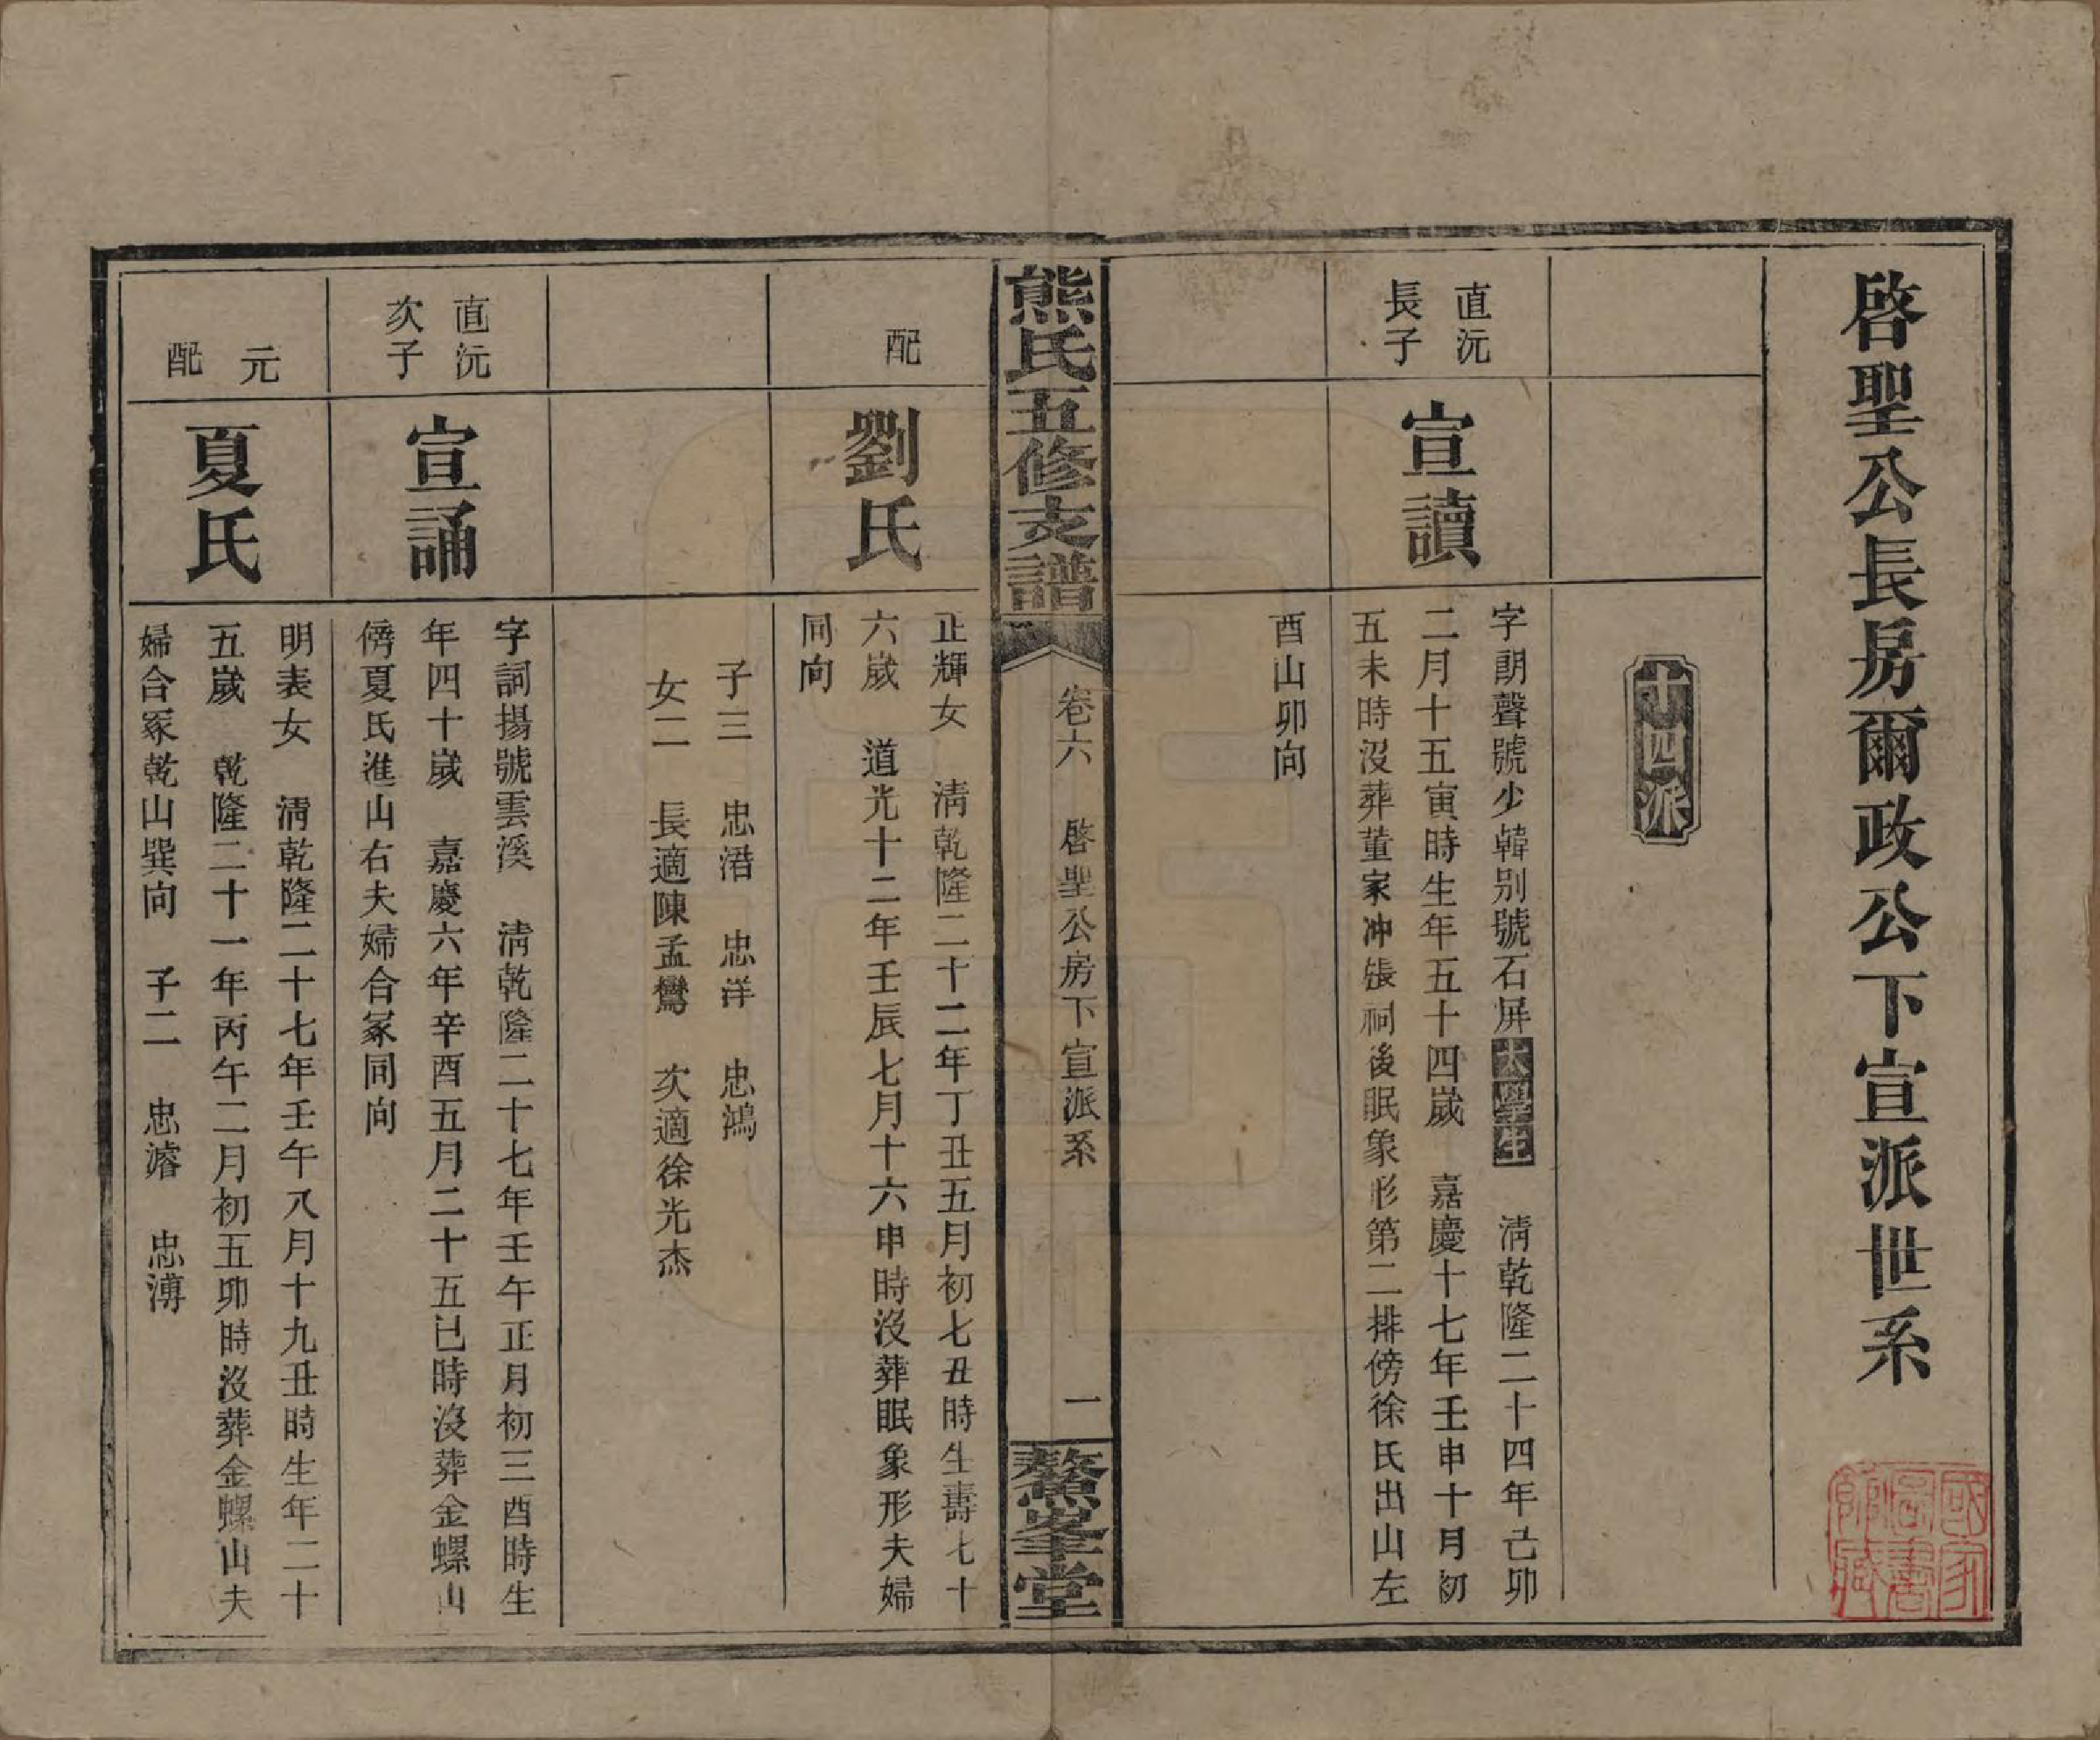 啓聖公長房爾政公下宣派世系
十四派
直沅
長子
宣讀
字朗聲號少韓別號石屏太學生　清乾隆二十四年己卯
二月十五寅時生年五十四歲　嘉慶十七年壬申十月初
五未時沒葬董家冲張祠後眠象形第二排傍徐氏出山左
酉山卯向
熊氏五修支譜
卷六　啓聖公房下宣派系
一
鰲峯堂
配
劉氏
正輝女　清乾隆二十二年丁丑五月初七丑時生壽七十
六歲　道光十二年壬辰七月十六申時沒葬眠象形夫婦
同向
子三　忠湝　忠洋　忠鴻
女二　長適陳孟鸞　次適徐光杰
直沅
次子
宣誦
字詞揚號雲溪　清乾隆二十七年壬午正月初三酉時生
年四十歲　嘉慶六年辛酉五月二十五已時沒葬金螺山
傍夏氏進山右夫婦合冢同向
元
配
夏氏
明表女　清乾隆二十七年壬午八月十九丑時生年二十
五歲　乾隆二十一年丙午二月初五卯時沒葬金螺山夫
婦合冢乾山巽向　子二　忠濬　忠溥
國家
圖書
館藏